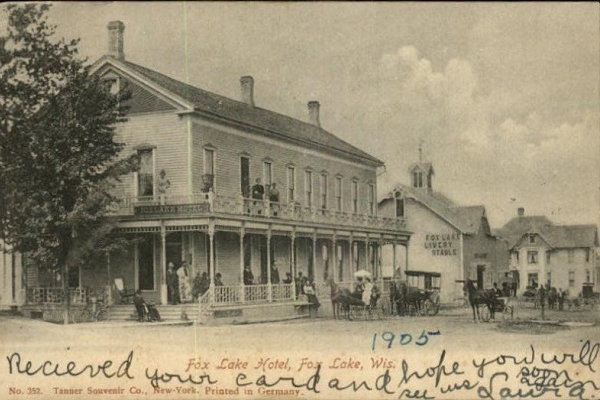 FOX LAKE
LIVERY
STABLE
1905
Fox Lake Hotel, Fox Lake, Wis.
Recieved your card and hope you will
see us soon again
Laura.
No. 392. Tanner Souvenir Co., New-York. Printed in Germany.